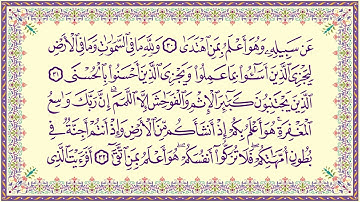 عَن سَبِيلِهِۦ وَهُوَ أَعْلَمُ بِمَنِ ٱهْتَدَىٰ ﴿٣٠﴾ وَلِلَّهِ مَا فِي ٱلسَّمَٰوَٰتِ وَمَا فِي ٱلْأَرْضِ
لِيَجْزِيَ ٱلَّذِينَ أَسَٰٓـُٔوا۟ بِمَا عَمِلُوا۟ وَيَجْزِيَ ٱلَّذِينَ أَحْسَنُوا۟ بِٱلْحُسْنَى ﴿٣١﴾
ٱلَّذِينَ يَجْتَنِبُونَ كَبَٰٓئِرَ ٱلْإِثْمِ وَٱلْفَوَٰحِشَ إِلَّا ٱللَّمَمَ ۚ إِنَّ رَبَّكَ وَٰسِعُ
ٱلْمَغْفِرَةِ ۚ هُوَ أَعْلَمُ بِكُمْ إِذْ أَنشَأَكُم مِّنَ ٱلْأَرْضِ وَإِذْ أَنتُمْ أَجِنَّةٌ فِي
بُطُونِ أُمَّهَٰتِكُمْ ۖ فَلَا تُزَكُّوٓا۟ أَنفُسَكُمْ ۖ هُوَ أَعْلَمُ بِمَنِ ٱتَّقَىٰٓ ﴿٣٢﴾ أَفَرَءَيْتَ ٱلَّذِي